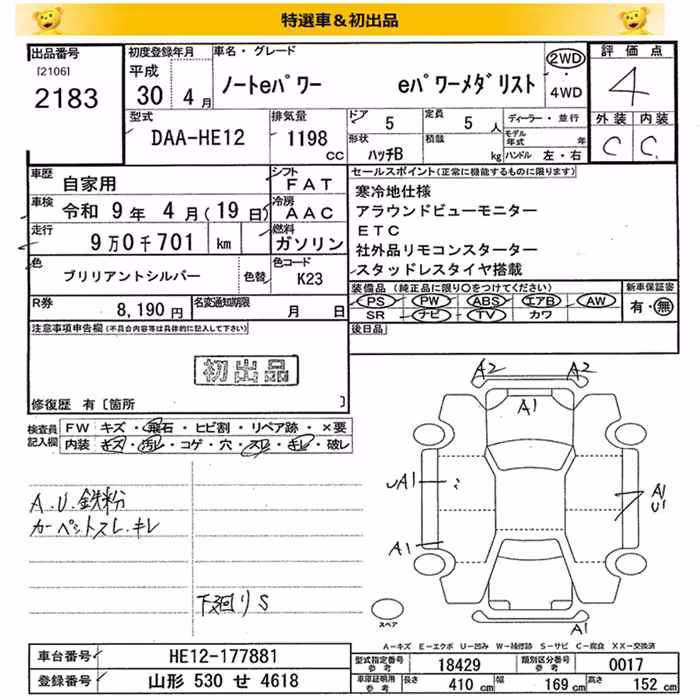 特選車&初出品
出品番号
[2106]
2183
初度登録年月
平成
30 4月
車名・グレード
ノートeパワー eパワーメダリスト
2WD
・
4WD
評価点
4
外装 内装
C C
型式
DAA-HE12
排気量
1198
CC
ドア
5
定員
5 人
形状
ハッチB
積載
kg
ディーラー・並行
モデル年式 年
ハンドル 左・右
車歴
自家用
シフト
FAT
車検
令和 9年 4月(19日)
冷房
AAC
走行
9万0千701 km
燃料
ガソリン
色
ブリリアントシルバー
色替
色コード
K23
R券
8,190円
名変通知期限
月 日
セールスポイント(正常に機能するものに限ります)
寒冷地仕様
アラウンドビューモニター
ETC
社外品リモコンスターター
スタッドレスタイヤ搭載
装備品 (純正品に限り○をつけてください)
PS PW ABS エアB AW
SR ナビ TV カワ
新車保証書
有・無
後日品
注意事項申告欄(不具合内容等は具体的に記入して下さい)
初出品
修復歴 有〔箇所 〕
検査員
記入欄
FW キズ・飛石・ヒビ割・リペア跡・×要
内装 キズ・汚レ・コゲ・穴・スレ・キレ・破レ
A.U.鉄粉
カーペットスレ.キレ
下廻りS
A2 A2
A1
UA1
A1
A1
U1
A1
スペア
A-キズ E-エクボ U-凹み W-補修跡 S-サビ C-腐食 XX-交換済
車台番号
HE12-177881
登録番号
山形 530 せ 4618
型式指定番号
参考
18429
類別区分番号
参考
0017
車庫証明用
参考
長さ 410cm 幅 169cm 高さ 152cm